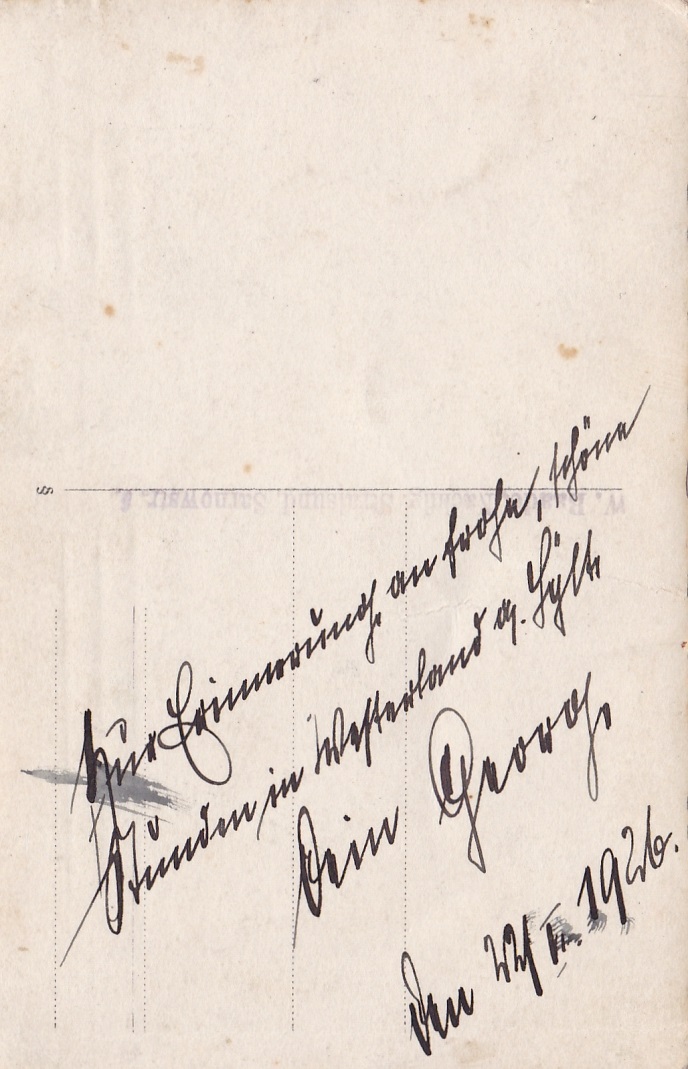 Zur Erinnerung an frohe, schöne
Stunden in Westerland a. Sylt.
Dein Georg.
Den 1926.
Stralsund, Sarnowstr.
§